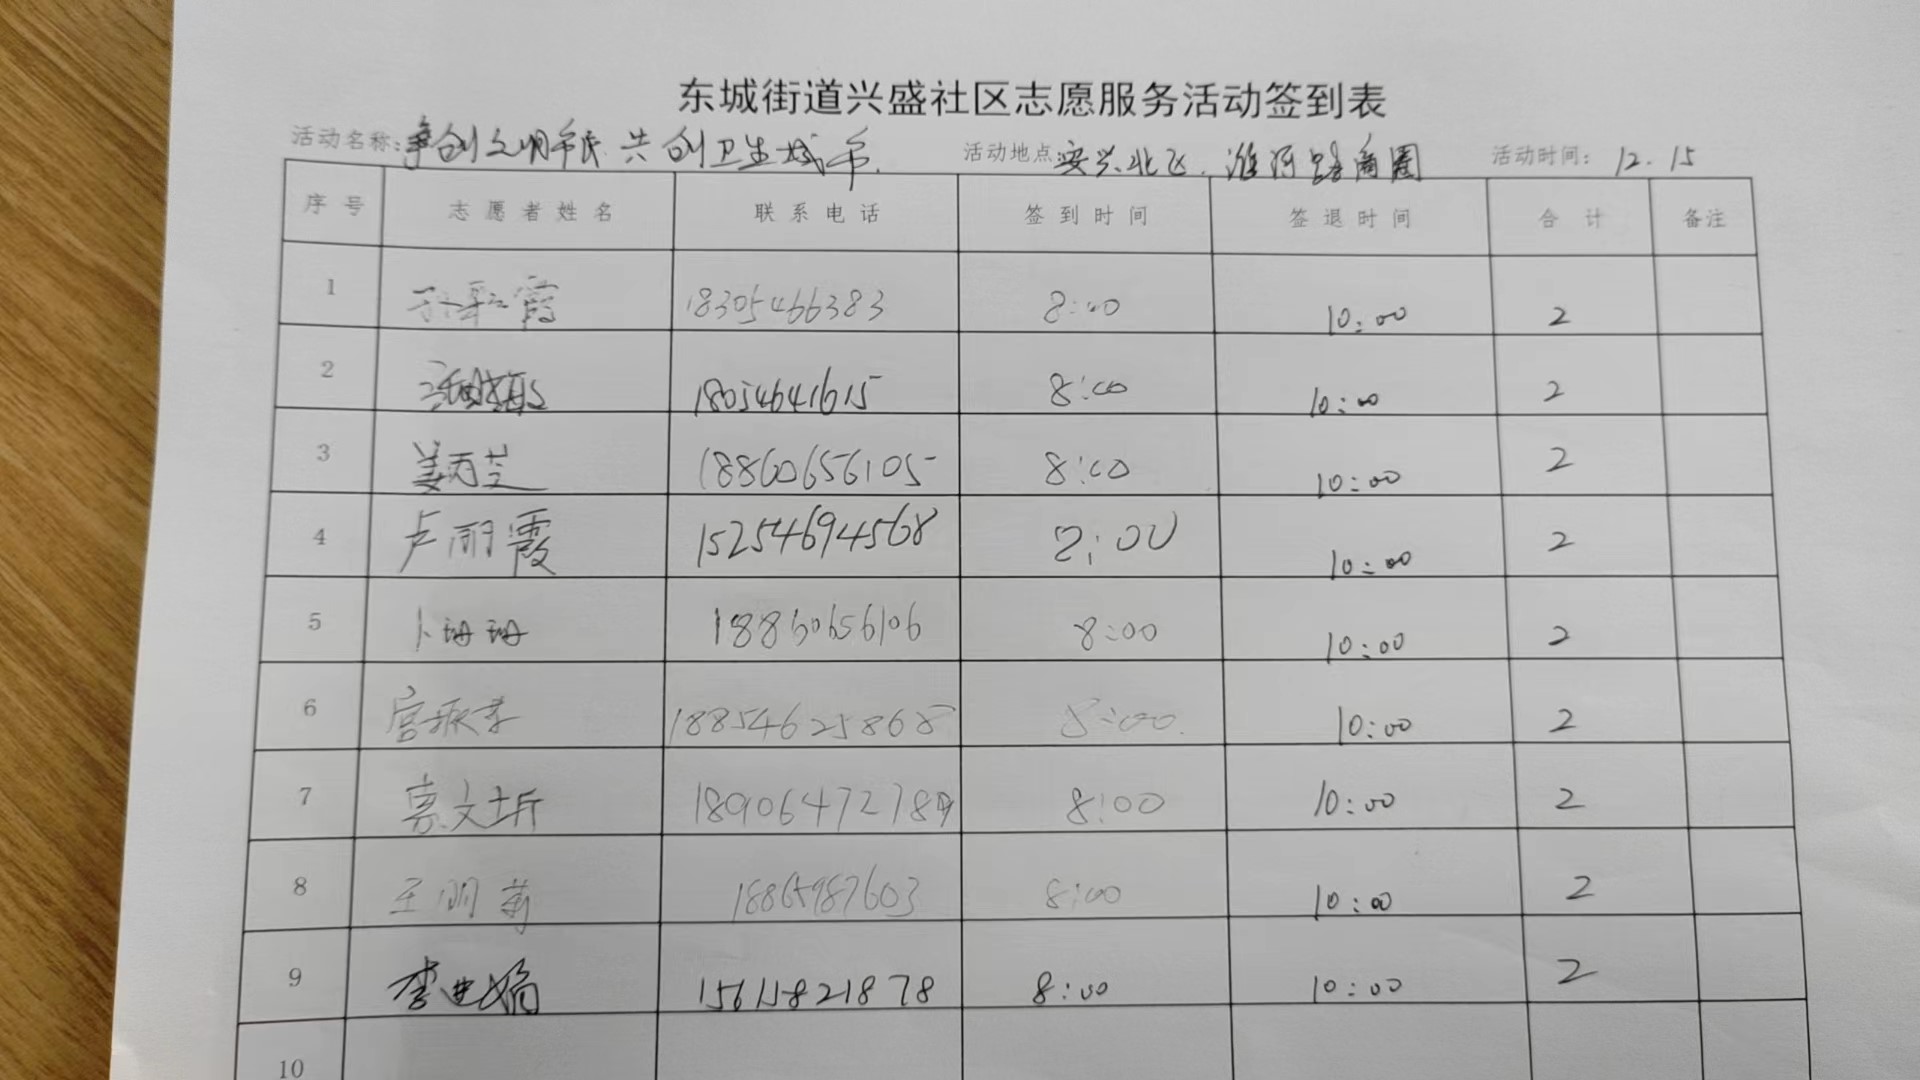 东城街道兴盛社区志愿服务活动签到表
活动名称:争创文明市民 共创卫生城市. 活动地点 安兴北区. 淮河路商圈 活动时间: 12.15
序号 志愿者姓名 联系电话 签到时间 签退时间 合计 备注
1 18305466383 8:00 10:00 2
2 18054641615 8:00 10:00 2
3 姜丙芝 18860656105 8:00 10:00 2
4 卢丽霞 15254694568 8:00 10:00 2
5 卜珊珊 18860656106 8:00 10:00 2
6 18854625868 8:00. 10:00 2
7 10:00 8:00 2
8 王明菊 18865987603 8:00 10:00 2
9 8:00 10:00 2
10